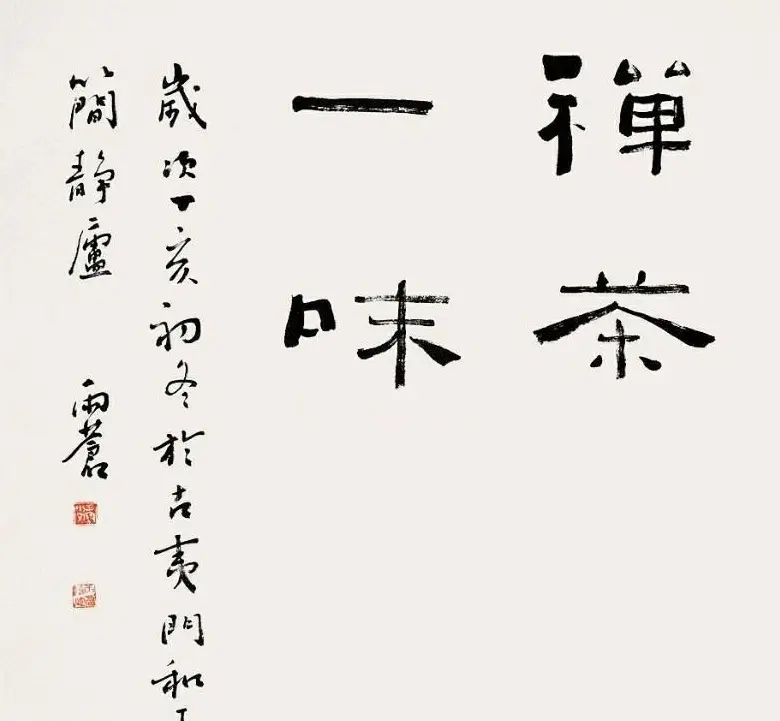 禪茶
一味
歲次丁亥初冬於古夷門和
簡靜廬 雨蒼